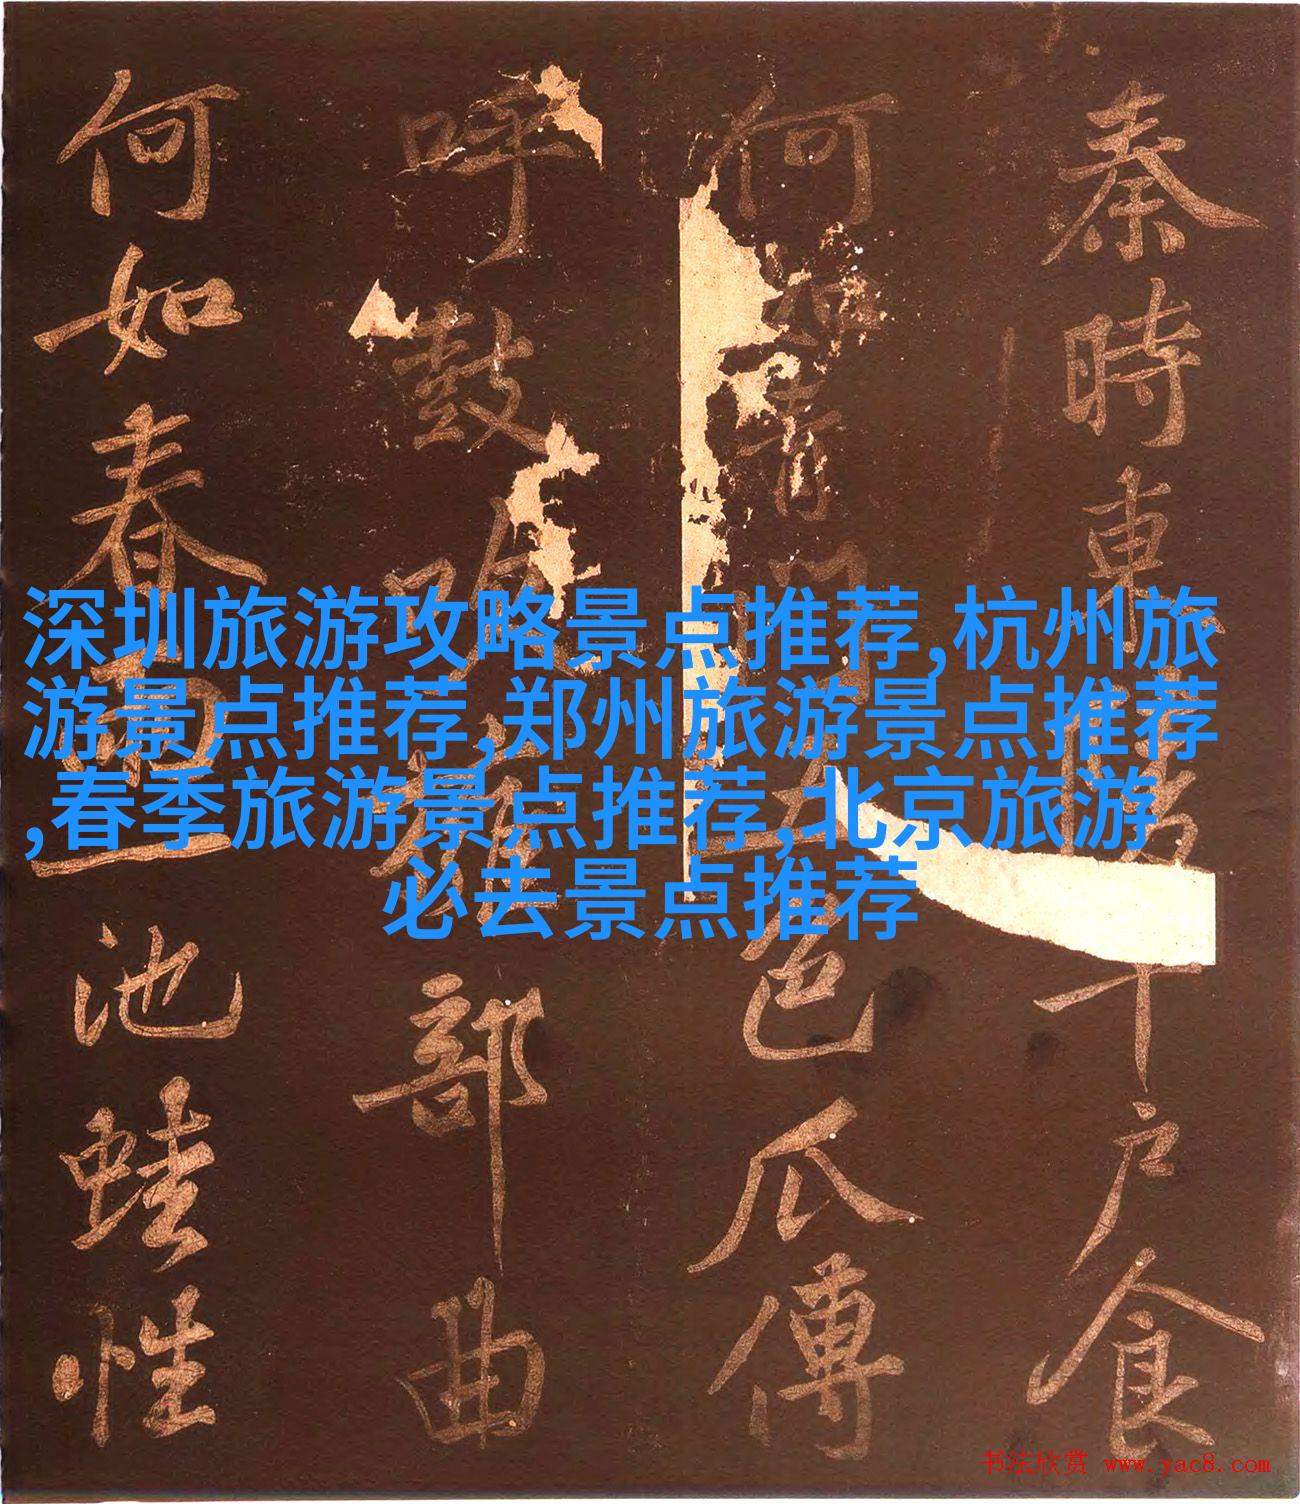 深圳旅游攻略景点推荐,杭州旅
游景点推荐,郑州旅游景点推荐
,春季旅游景点推荐,北京旅游
必去景点推荐
秦時東千戶食
何如青門五色瓜傳
呼鼓吹部曲
何如春池蛙性
书法欣赏 www.yac8.com